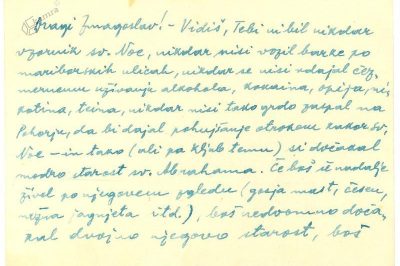 Dragi Zmagoslav! – Vidiš, Tebi ni bil nikdar
vzornik sv. Noe, nikdar nisi vozil barke po
mariborskih ulicah, nikdar se nisi vdajal čez-
mernemu uživanju alkohola, kokaina, opija, ni-
kotina, teina, nikdar nisi tako grdo zaspal na
Pohorju, da bi dajal pohujšanje otrokom kakor sv.
Noe – in tako (ali pa kljub temu) si dočakal
modro starost sv. Abrahama. Če boš še nadalje
živel po njegovem zgledu (gosja mast, česen,
nežna jagnjeta itd.), boš nedvomno doča-
kal dvojno njegovo starost, boš